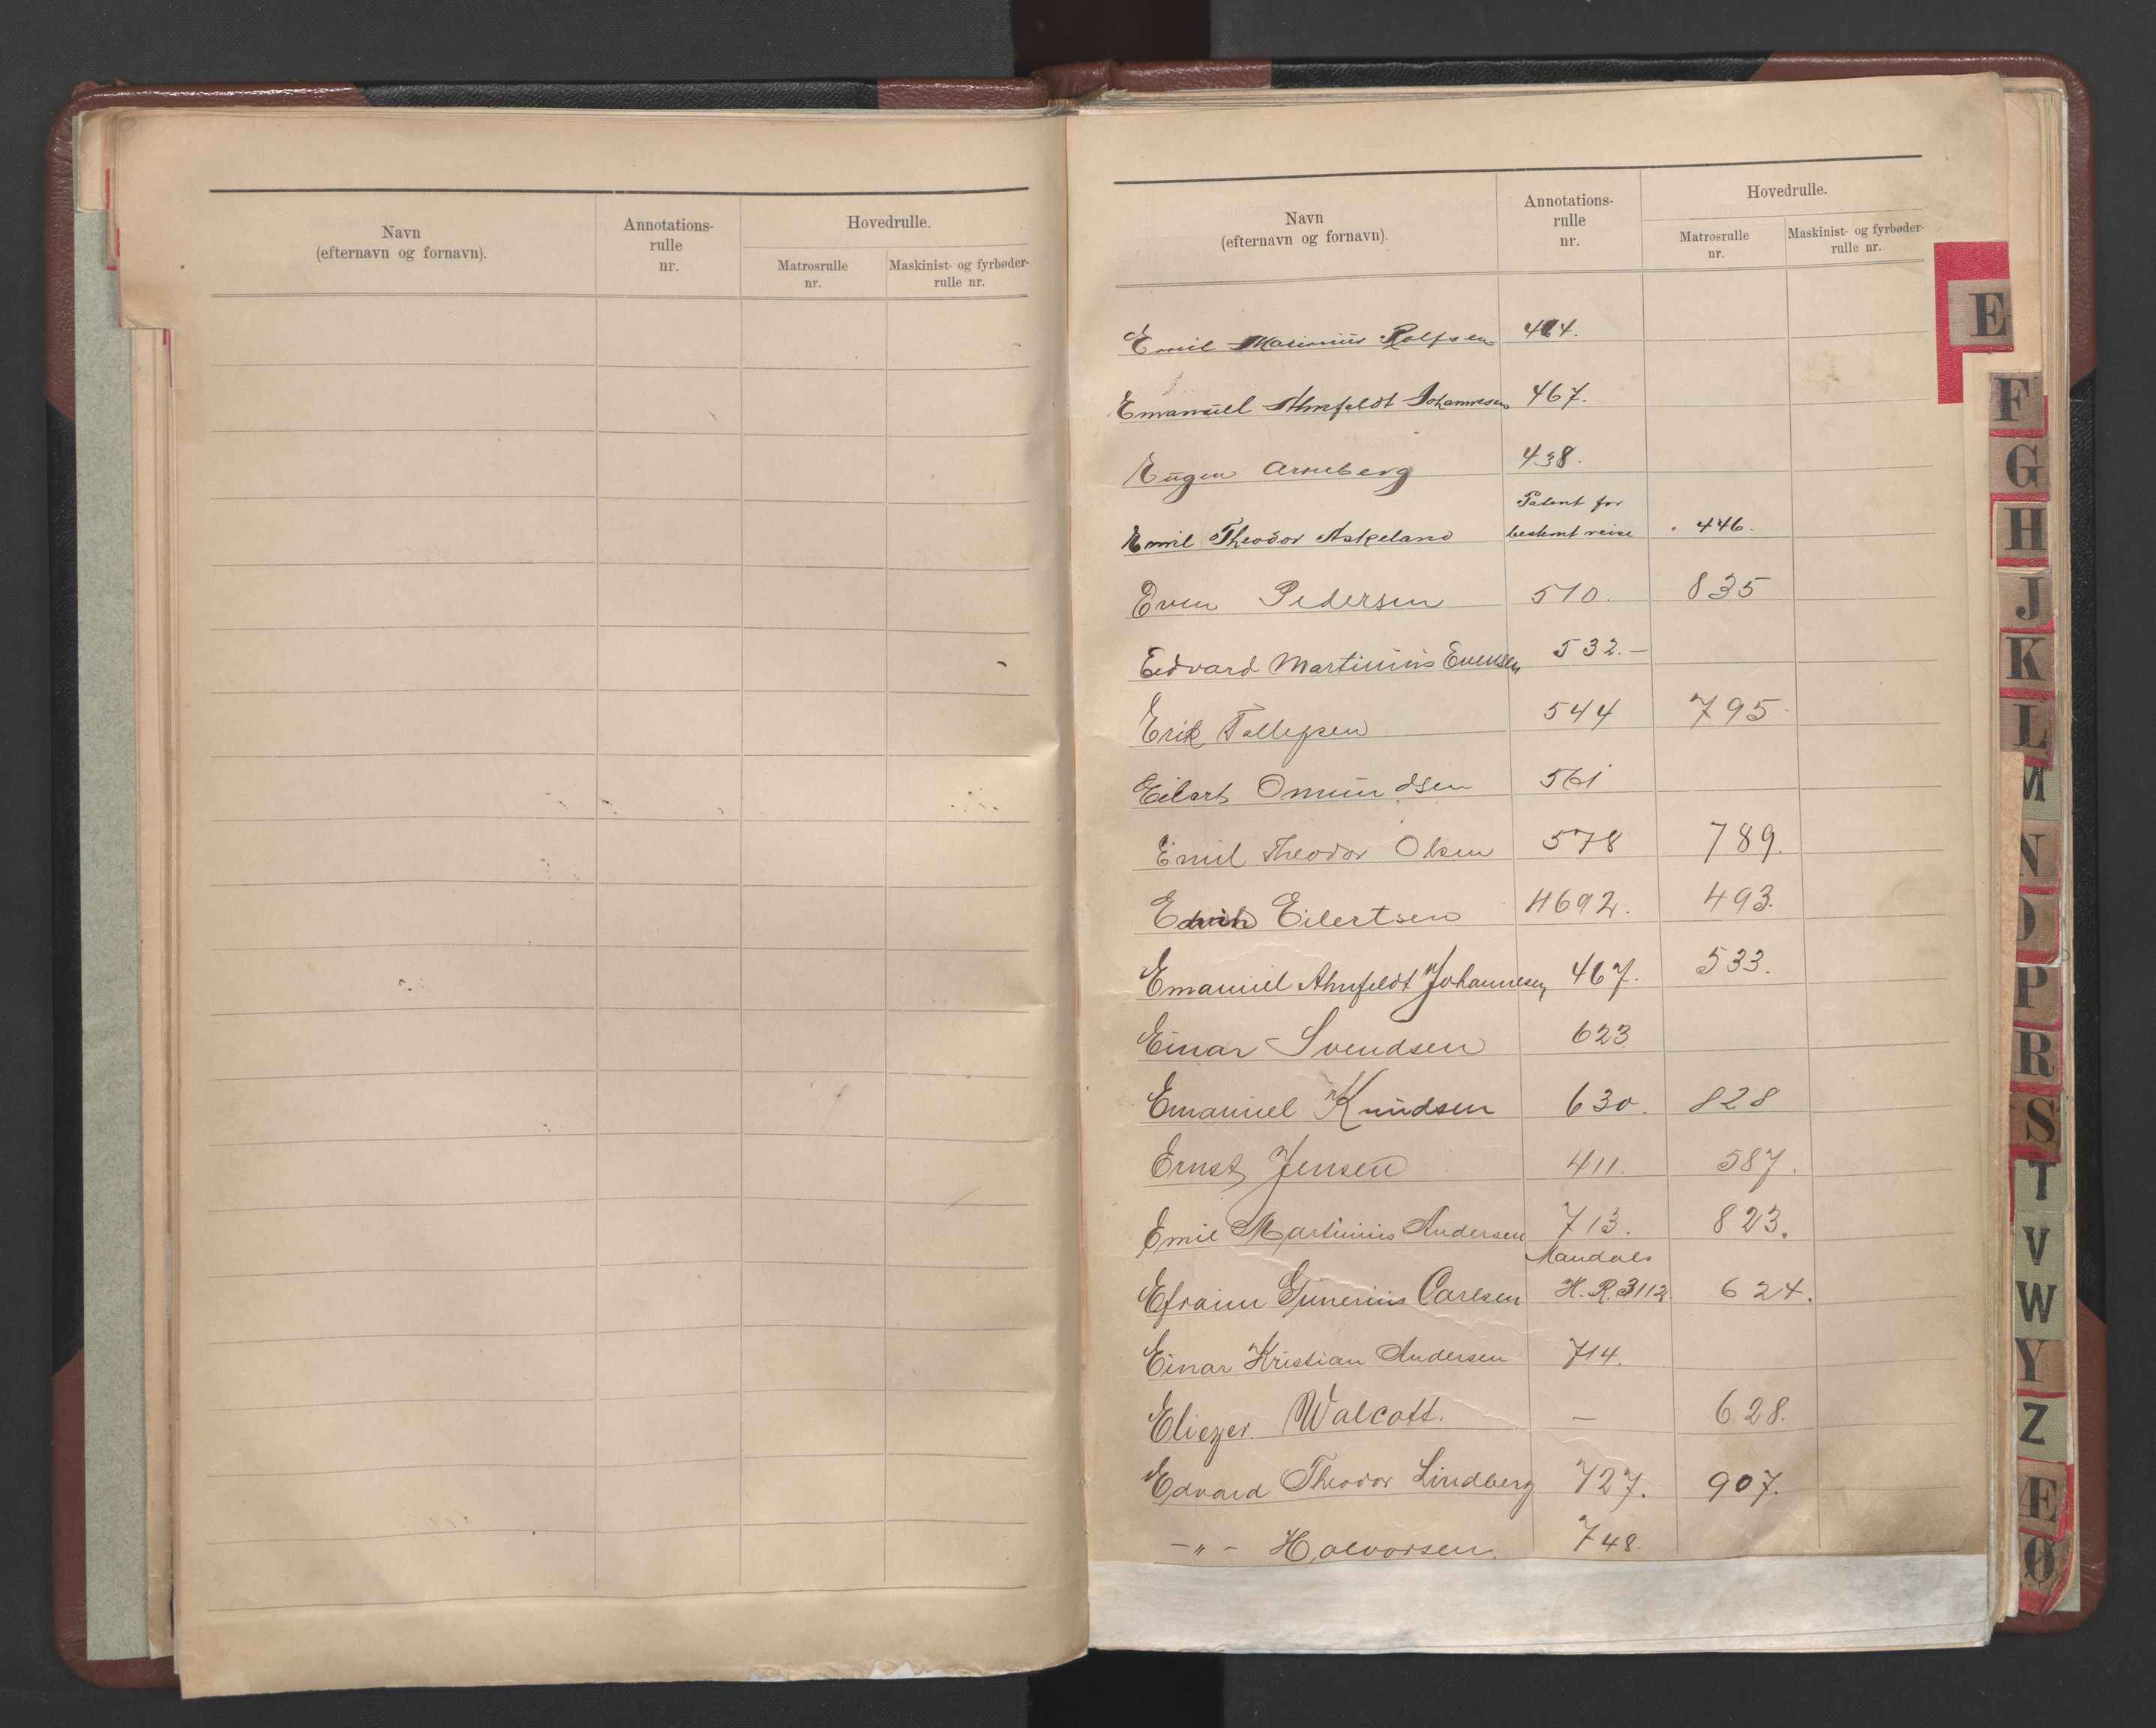 Navn
(efternavn og fornavn).
Annotations-
rulle
nr.
Hovedrulle.
Matrosrulle
nr.
Maskinist- og fyrbøder-
rulle nr.
Navn
(efternavn og fornavn).
Annotations-
rulle
nr.
Hovedrulle.
Matrosrulle
nr.
Maskinist- og fyrbøder-
rulle nr.
Emil Rolfsen
Emanuel Ahnfeldt Johannesen 467.
Eugen Arneberg 438.
Patent for
Emil Theodor Askeland bestemt reise 446.
Even Pedersen 510. 835
Edvard Martinius Evensen 532.—
Erik Tollefsen 544 795
Eilert Omundsen 561
Emil Theodor Olsen 578 789.
Eilertsen 4692. 493.
Emanuel Ahnfeldt Johannesen 467. 533.
Einar Svendsen 623
Emanuel Knudsen 630. 828
Ernst Jensen 411. 587.
Emil Martinius Andersen 713. 823.
Mandals
Efraim Gunerius Carlsen H. R. 3112. 624.
Einar Kristian Andersen 714.
Eliezer Walcott. — 628.
Edvard Theodor Lindberg 727. 907.
—„— Halvorsen. 748.
E
F
G
H
J
K
L
M
N
O
P
R
S
T
V
W
Y
Z
Æ
Ø